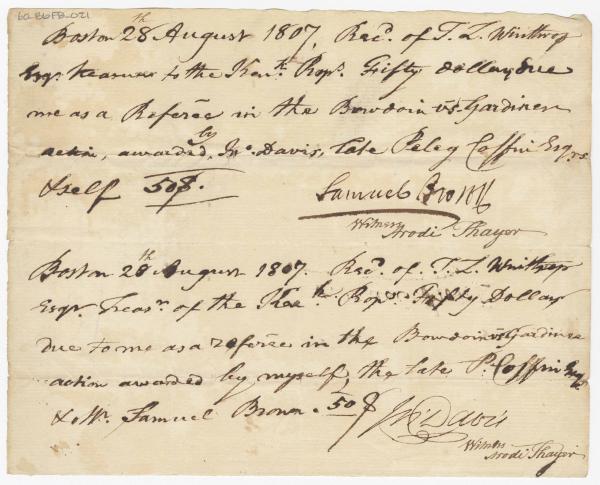 60-86FB-021
Boston 28th August 1807, Recd. of T. L. Winthrop
Esqr. treasurer to the Kenk. Propr. Fifty dollars due
me as a Referee in the Bowdoin vs. Gardiner
action, awarded by Jno. Davis, late Peleg Coffin Esqrs
& self 50$.
Samuel Brown
Witness
Arodi Thayer
Boston 28th August 1807. Recd. of T. L. Winthrop
Esqr. Treasr. of the Kenk. Propr. Fifty Dollars
due to me as a referee in the Bowdoin vs Gardiner
action awarded by myself, the late P. Coffin Esqr.
& Mr. Samuel Brown. 50$
Jno. Davis
Witness
Arodi Thayer